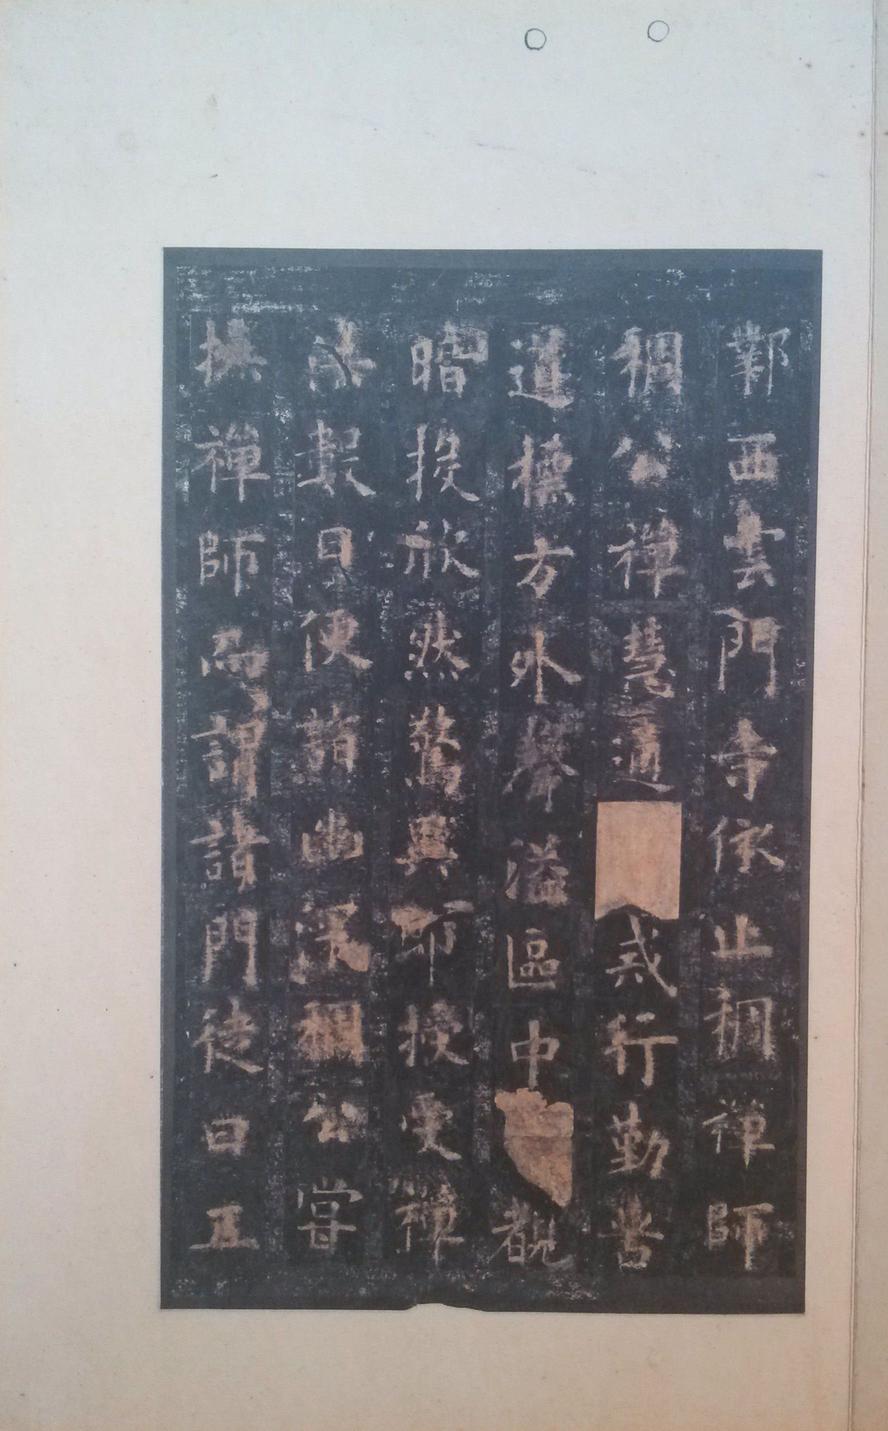 鄴西雲門寺依止稠禪師
稠公禪慧通戒行勤苦
道標方外聲溢區中觀
暗投欣然驚異即授受禪
法數日便詣幽深稠公嘗
撫禪師而謂諸門徒曰五